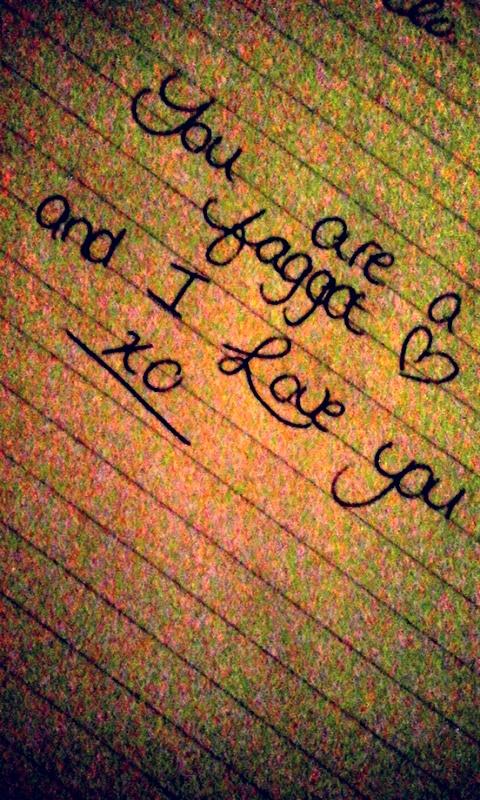 You are a
fagga ♡
and I Love you
xo